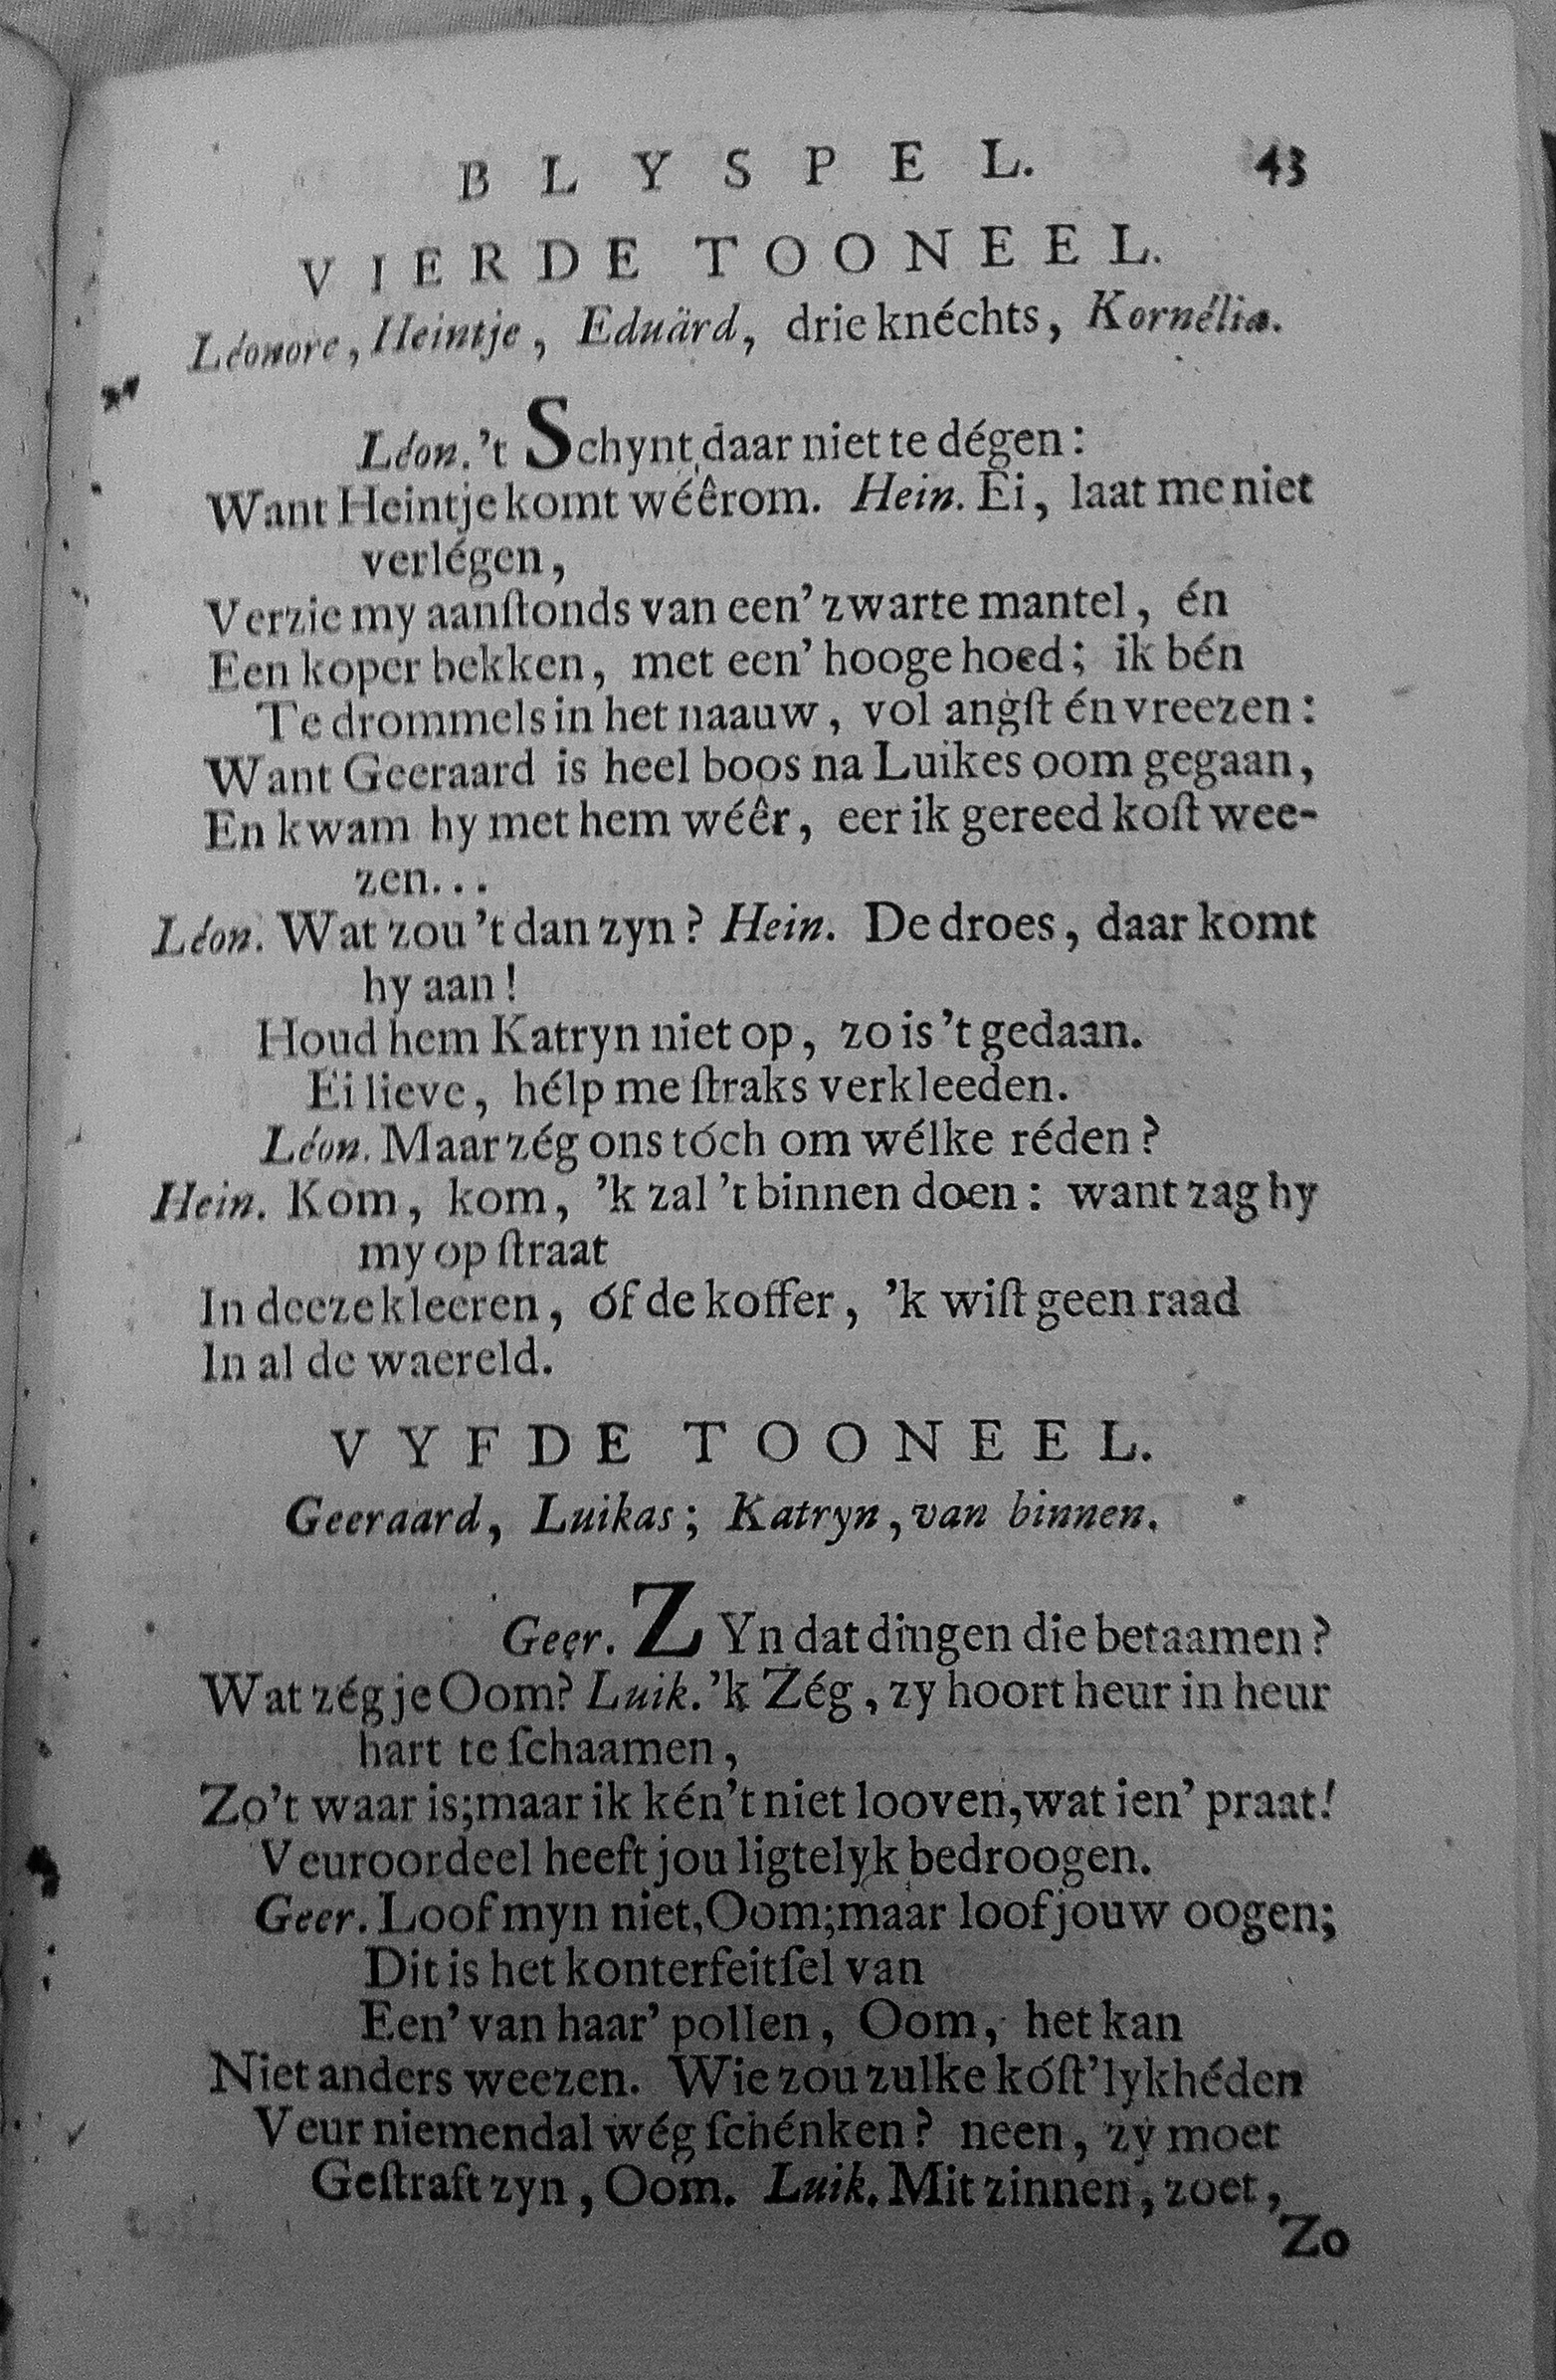 BLYSPEL. 43
VIERDE TOONEEL.
Léonore, Heintje, Eduärd, drie knéchts, Kornélia.
Léon. 't Schynt daar niet te dégen:
Want Heintje komt wéêrom. Hein. Ei, laat me niet
verlégen,
Verzie my aanſtonds van een' zwarte mantel, én
Een koper bekken, met een' hooge hoed; ik bén
Te drommels in het naauw, vol angſt én vreezen:
Want Geeraard is heel boos na Luikes oom gegaan,
En kwam hy met hem wéêr, eer ik gereed koſt wee-
zen...
Léon. Wat zou 't dan zyn? Hein. De droes, daar komt
hy aan!
Houd hem Katryn niet op, zo is 't gedaan.
Ei lieve, hélp me ſtraks verkleeden.
Léon. Maar zég ons tóch om wélke réden?
Hein. Kom, kom, 'k zal 't binnen doen: want zag hy
my op ſtraat
In deeze kleeren, óf de koffer, 'k wiſt geen raad
In al de waereld.
VYFDE TOONEEL.
Geeraard, Luikas; Katryn, van binnen.
Geer. ZYn dat dingen die betaamen?
Wat zég je Oom? Luik. 'k Zég, zy hoort heur in heur
hart te ſchaamen,
Zo't waar is; maar ik kén't niet looven, wat ien' praat!
Veuroordeel heeft jou ligtelyk bedroogen.
Geer. Loof myn niet, Oom; maar loof jouw oogen;
Dit is het konterfeitſel van
Een' van haar' pollen, Oom, het kan
Niet anders weezen. Wie zou zulke kóſt'lykhéden
Veur niemendal wég ſchénken? neen, zy moet
Geſtraft zyn, Oom. Luik. Mit zinnen, zoet,
Zo